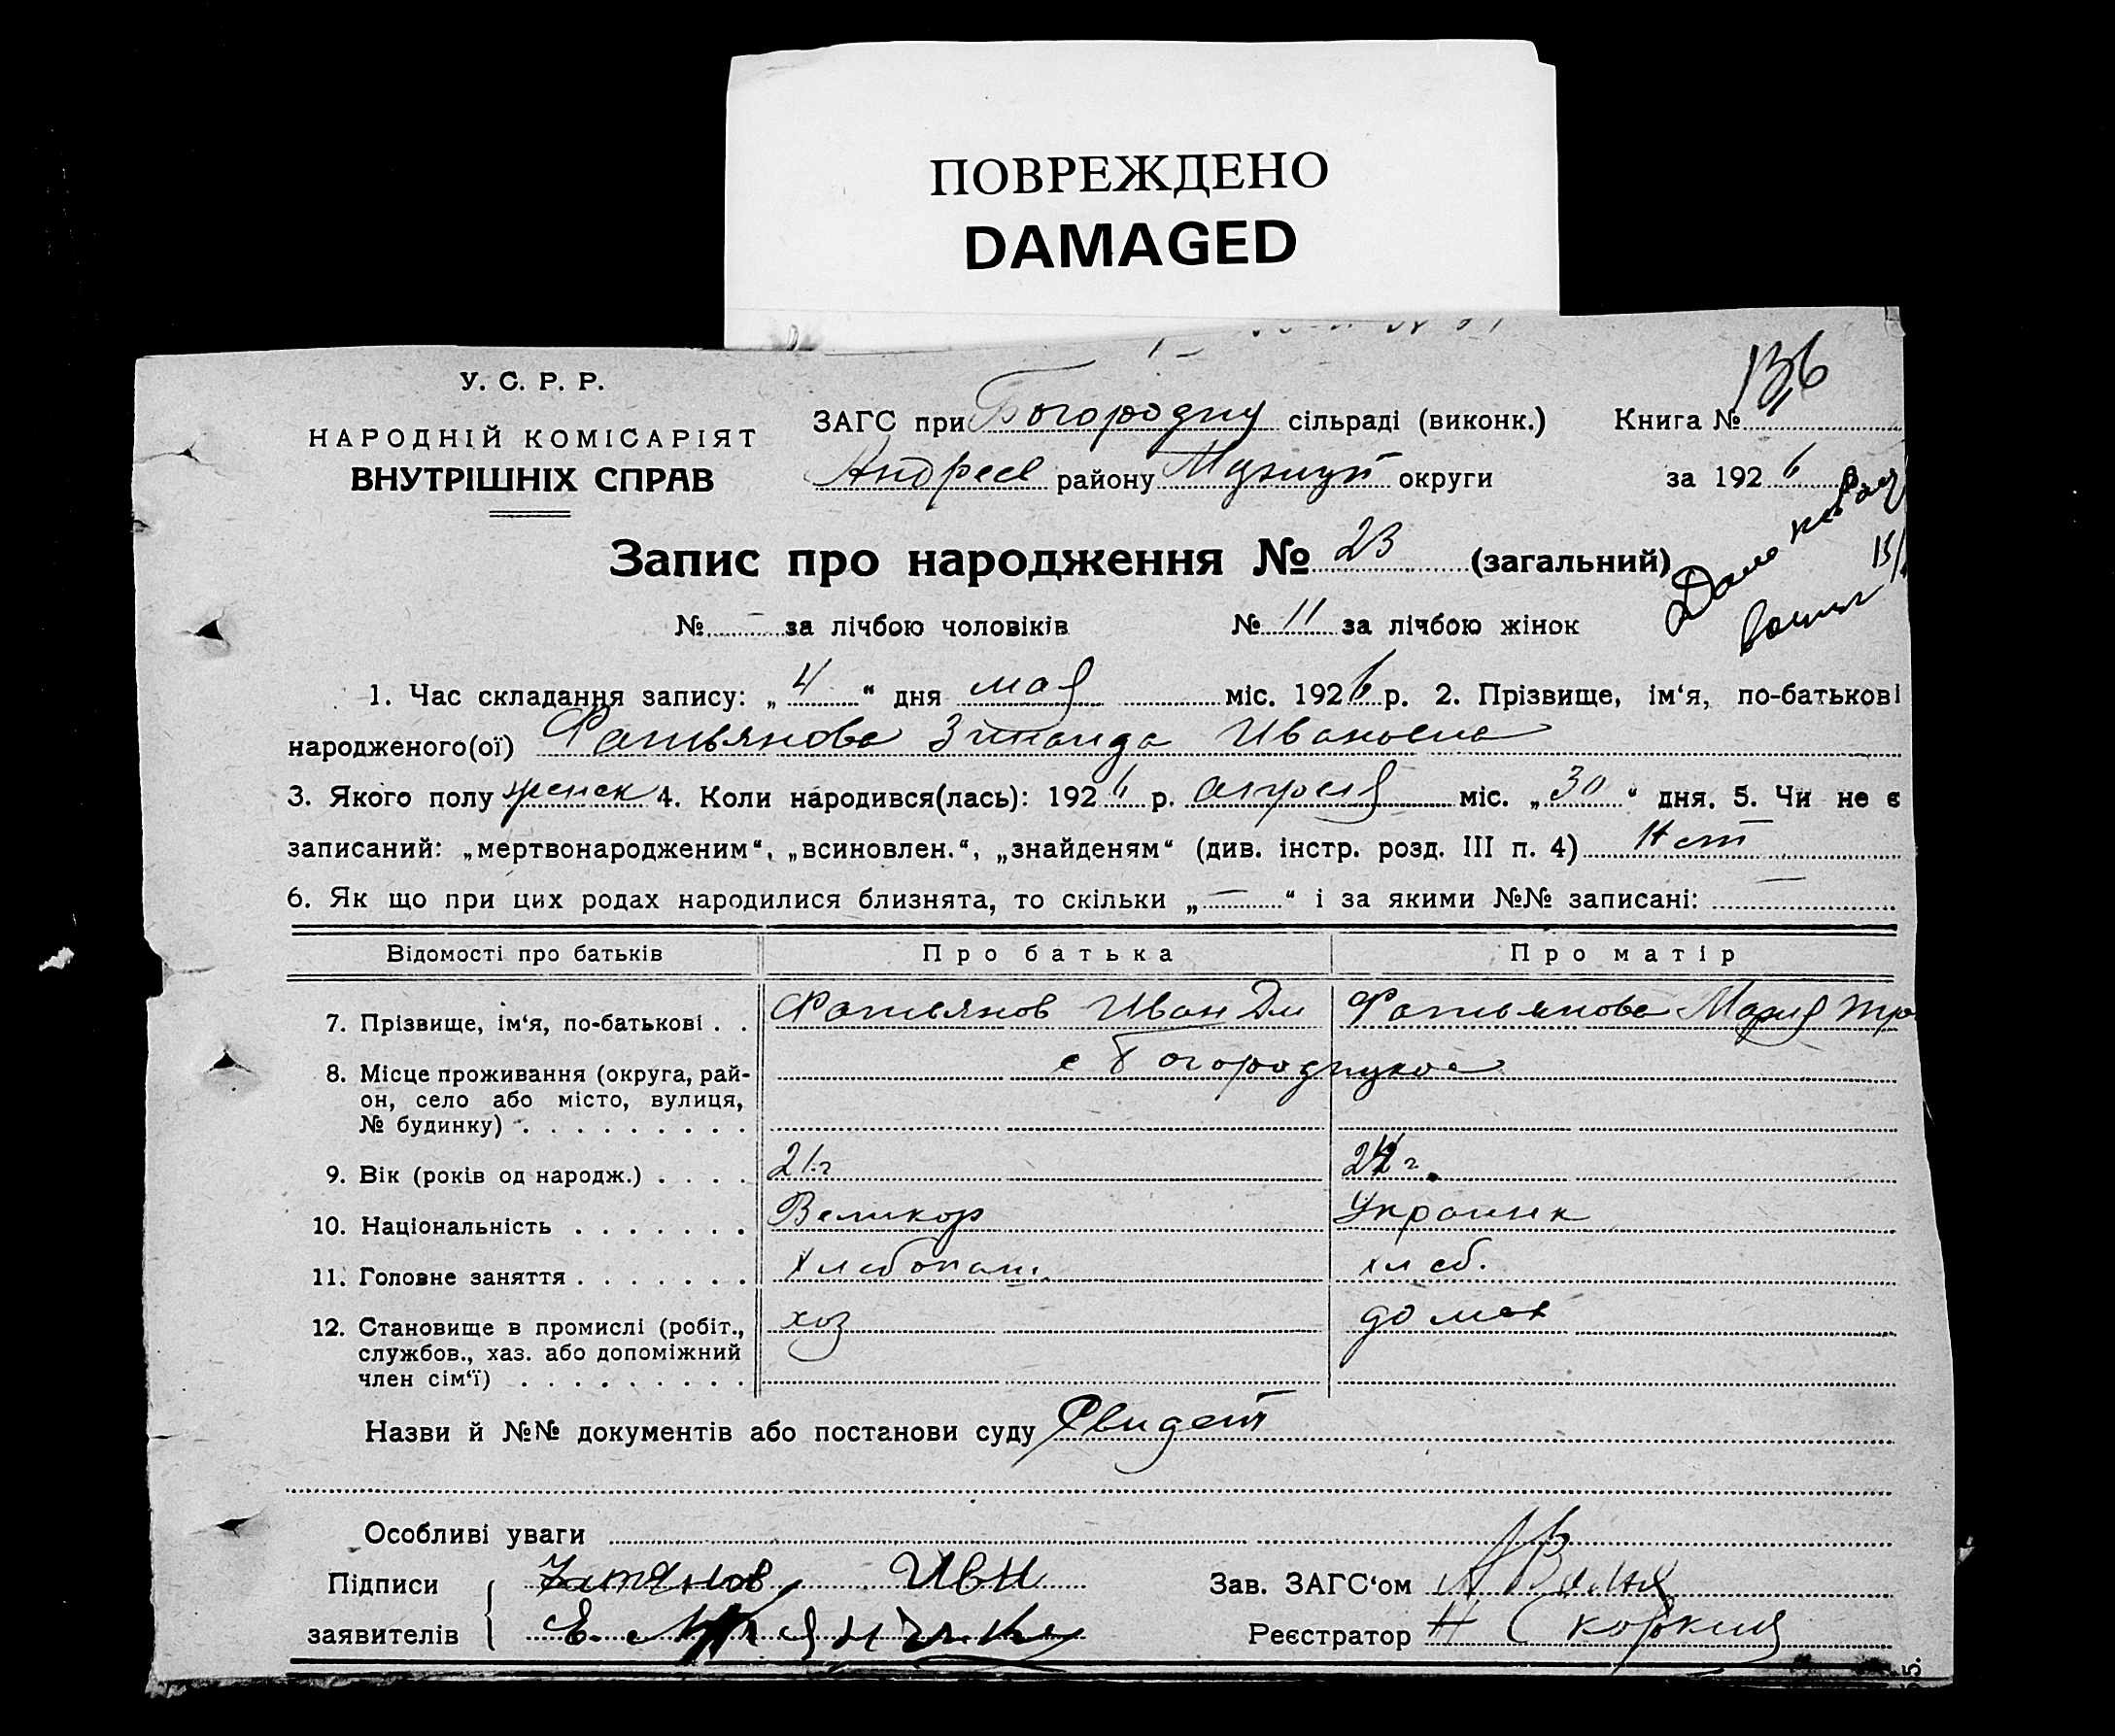 ПОВРЕЖДЕНО
DAMAGED
У. С. Р. Р.
НАРОДНІЙ КОМІСАРІЯТ
ВНУТРІШНІХ СПРАВ
ЗАГС при Богородиц сільраді (виконк.) Книга №
Андреев району округи за 1926
Запис про народження № 23 (загальний)
№ – за лічбою чоловіків № 11 за лічбою жінок
1. Час складання запису: „4“ дня мая міс. 1926 р. 2. Прізвище, ім‘я, по-батькові
народженого(ої) Фатьянова Зинаида Ивановна
3. Якого полу женск 4. Коли народився(лась): 1926 р. апреля міс. „30“ дня. 5. Чи не є
записаний: „мертвонародженим“, „всиновлен.“, „знайденям“ (див. інстр. розд. III п. 4) Нет
6. Як що при цих родах народилися близнята, то скільки „—“ і за якими №№ записані: —
Відомості про батьків Про батька Про матір
7. Прізвище, ім‘я, по-батькові . . Фатьянов Иван Дм Фатьянова Мария Тро
8. Місце проживання (округа, рай-
он, село або місто, вулиця,
№ будинку) . . . . . . . . .
с Богородицкое
9. Вік (років од народж.) . . . . 21 г 24 г.
10. Національність . . . . . . . Великор Украинк
11. Головне заняття . . . . . . . Хлебопаш. хлеб.
12. Становище в промислі (робіт.,
службов., хаз. або допоміжний
член сім‘ї) . . . . . . . . .
хоз домох
Назви й №№ документів або постанови суду Свидет
Особливі уваги
Підписи
заявителів
Фатянов Ивн
Е.
Зав. ЗАГС‘ом
Реєстратор Н Скоркин